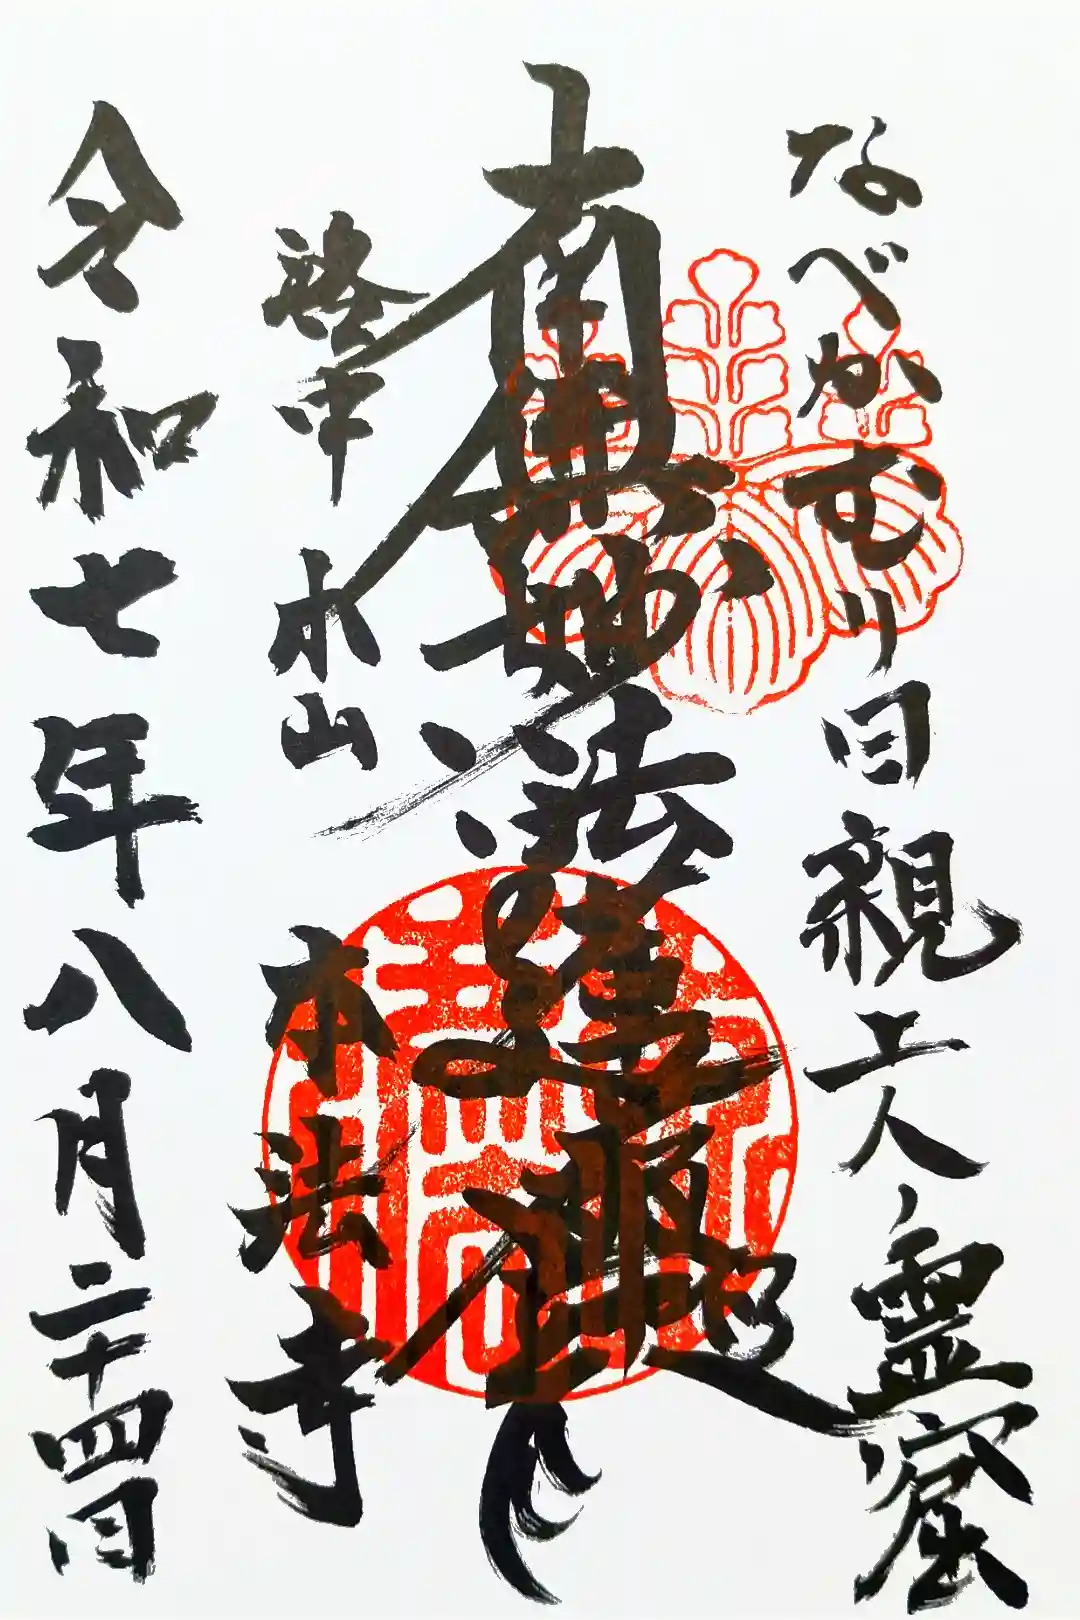 なべかむり日親上人霊窟
南無妙法蓮華経
洛中 本山 本法寺
令和七年八月二十四日